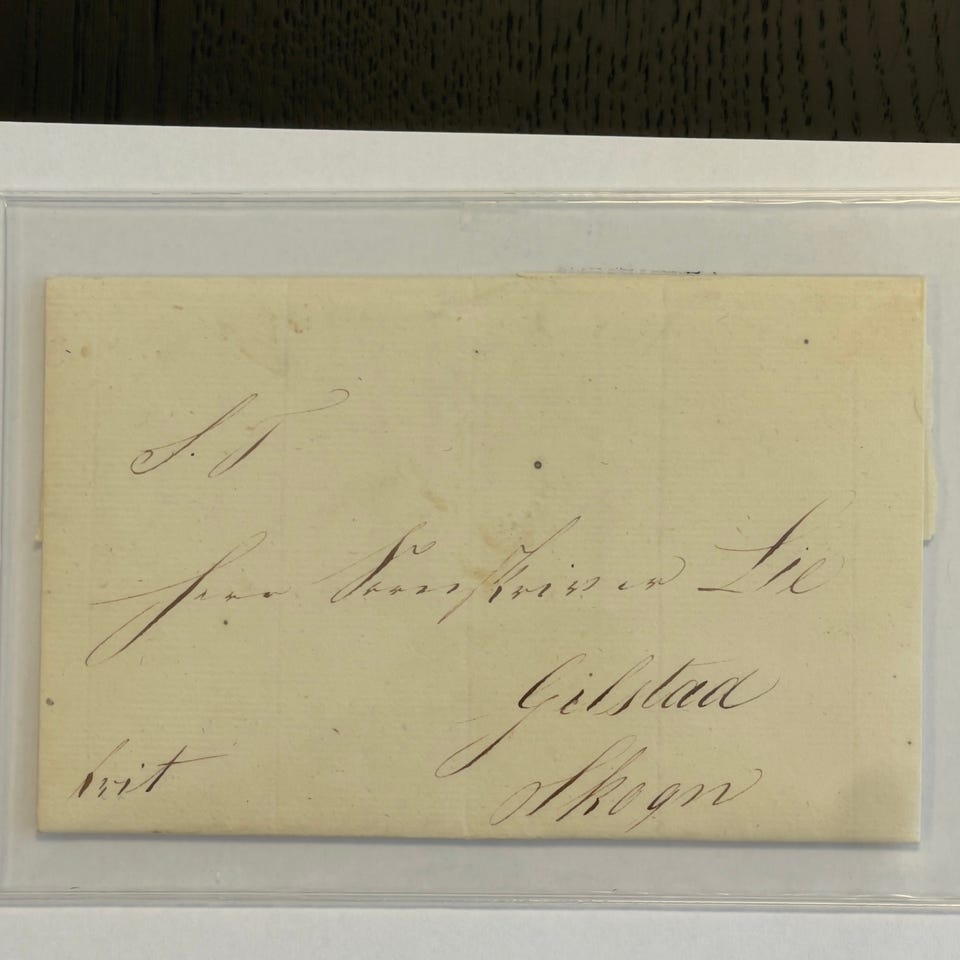 S. T
Herr Sorenskriver Lie
Gilstad
Skogn
frit